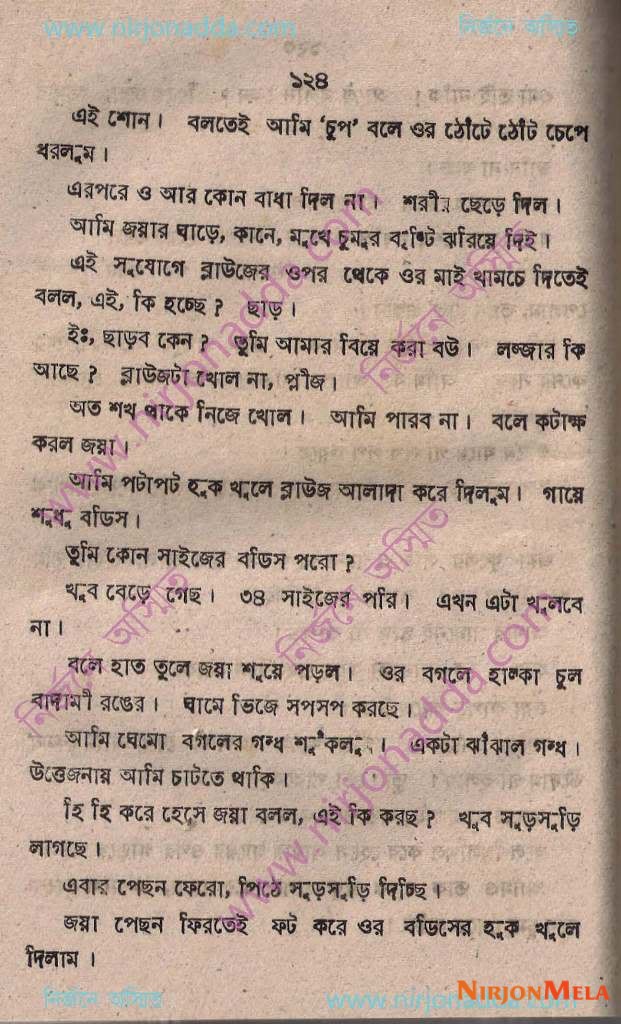 www.nirjonadda.com নির্জনে অস্মিত
১২৪
এই শোন। বলতেই আমি ‘চুপ’ বলে ওর ঠোঁটে ঠোঁট চেপে
ধরলুম।
এরপরে ও আর কোন বাধা দিল না। শরীর ছেড়ে দিল।
আমি জয়ার ঘাড়ে, কানে, মুখে চুমুর বৃষ্টি ঝরিয়ে দিই।
এই সুযোগে ব্লাউজের ওপর থেকে ওর মাই খামচে দিতেই
বলল, এই, কি হচ্ছে? ছাড়।
ইঃ, ছাড়ব কেন? তুমি আমার বিয়ে করা বউ। লজ্জার কি
আছে? ব্লাউজটা খোল না, প্লীজ।
অত শখ থাকে নিজে খোল। আমি পারব না। বলে কটাক্ষ
করল জয়া।
আমি পটাপট হুক খুলে ব্লাউজ আলাদা করে দিলুম। গায়ে
শুধু বডিস।
তুমি কোন সাইজের বডিস পরো?
খুব বেড়ে গেছ। ৩৪ সাইজের পরি। এখন এটা খুলবে
না।
বলে হাত তুলে জয়া শুয়ে পড়ল। ওর বগলে হাল্কা চুল
বাদামী রঙের। ঘামে ভিজে সপসপ করছে।
আমি ঘেমো বগলের গন্ধ শুঁকলুম। একটা ঝাঁঝাল গন্ধ।
উত্তেজনায় আমি চাটতে থাকি।
হি হি করে হেসে জয়া বলল, এই কি করছ? খুব সুড়সুড়ি
লাগছে।
এবার পেছন ফেরো, পিঠে সুড়সুড়ি দিচ্ছি।
জয়া পেছন ফিরতেই ফট করে ওর বডিসের হুক খুলে
দিলাম।
www.nirjonadda.com
নির্জনে অস্মিত
www.nirjonadda.com
নির্জনে অস্মিত
নির্জনে অস্মিত
www.nirjonadda.com
NIRJONMELA
নির্জনে অস্মিত www.nirjonadda.com